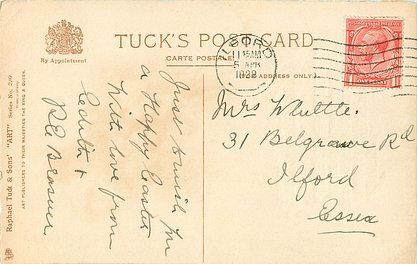 TUCK'S POST CARD
CARTE POSTALE
(ADDRESS ONLY)
By Appointment
Raphael Tuck & Sons' "ART" Series No.
ART PUBLISHERS TO THEIR MAJESTIES THE KING & QUEEN.
ILFORD
11.15AM
5 APR
1928
Just to wish
a Happy Easter
With love from
Edith &
Mrs Whittle.
31 Belgrave Rd
Ilford
Essex